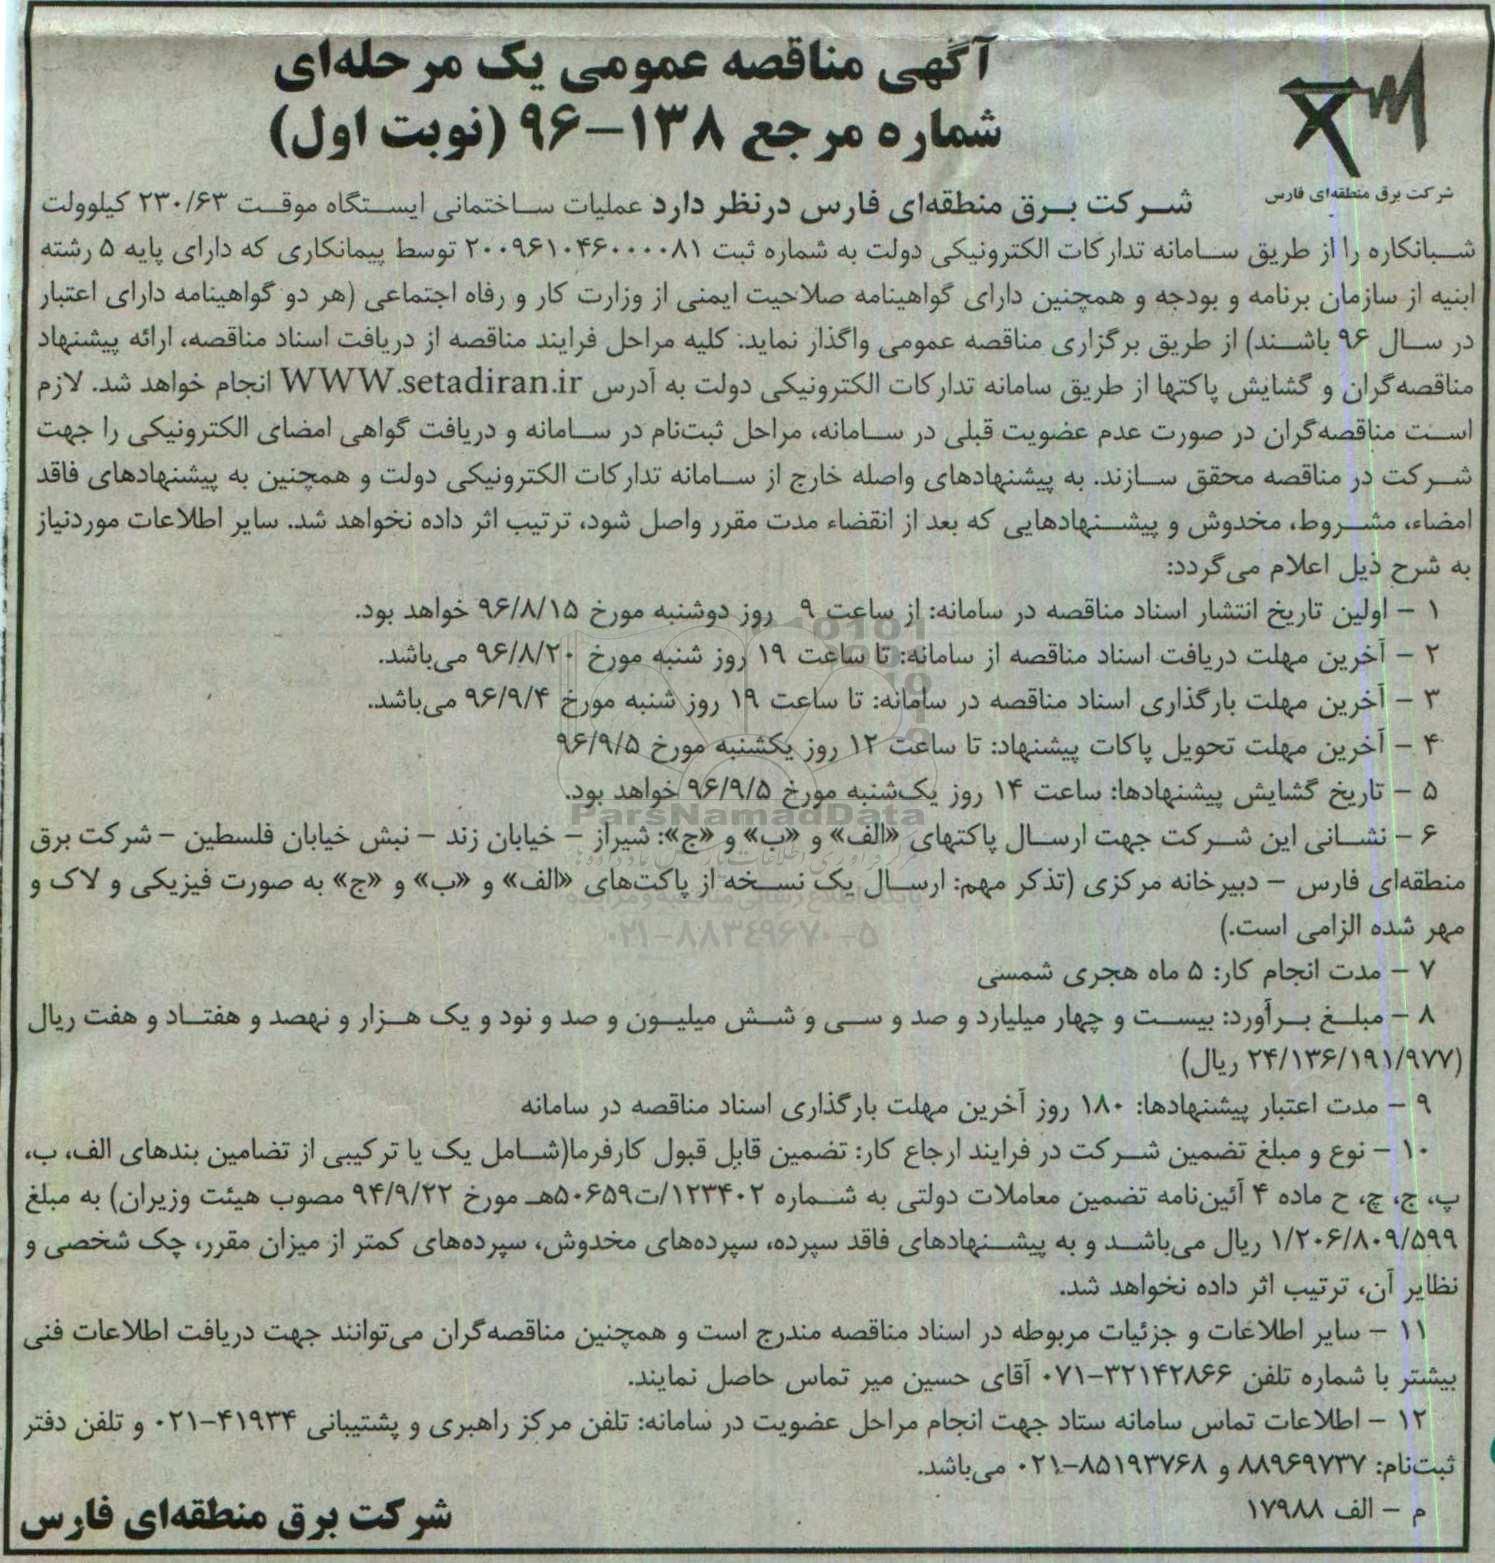 آگهی مناقصه عمومی یک مرحله‌ای
شماره مرجع ۱۳۸-۹۶ (نوبت اول)
شرکت برق منطقه‌ای فارس
شرکت برق منطقه‌ای فارس درنظر دارد عملیات ساختمانی ایستگاه موقت ۲۳۰/۶۳ کیلوولت
شبانکاره را از طریق سامانه تدارکات الکترونیکی دولت به شماره ثبت ۲۰۰۹۶۱۰۴۶۰۰۰۰۸۱ توسط پیمانکاری که دارای پایه ۵ رشته
ابنیه از سازمان برنامه و بودجه و همچنین دارای گواهینامه صلاحیت ایمنی از وزارت کار و رفاه اجتماعی (هر دو گواهینامه دارای اعتبار
در سال ۹۶ باشند) از طریق برگزاری مناقصه عمومی واگذار نماید: کلیه مراحل فرایند مناقصه از دریافت اسناد مناقصه، ارائه پیشنهاد
مناقصه‌گران و گشایش پاکتها از طریق سامانه تدارکات الکترونیکی دولت به آدرس WWW.setadiran.ir انجام خواهد شد. لازم
است مناقصه‌گران در صورت عدم عضویت قبلی در سامانه، مراحل ثبت‌نام در سامانه و دریافت گواهی امضای الکترونیکی را جهت
شرکت در مناقصه محقق سازند. به پیشنهادهای واصله خارج از سامانه تدارکات الکترونیکی دولت و همچنین به پیشنهادهای فاقد
امضاء، مشروط، مخدوش و پیشنهادهایی که بعد از انقضاء مدت مقرر واصل شود، ترتیب اثر داده نخواهد شد. سایر اطلاعات موردنیاز
به شرح ذیل اعلام می‌گردد:
۱ – اولین تاریخ انتشار اسناد مناقصه در سامانه: از ساعت ۹ روز دوشنبه مورخ ۹۶/۸/۱۵ خواهد بود.
۲ – آخرین مهلت دریافت اسناد مناقصه از سامانه: تا ساعت ۱۹ روز شنبه مورخ ۹۶/۸/۲۰ می‌باشد.
۳ – آخرین مهلت بارگذاری اسناد مناقصه در سامانه: تا ساعت ۱۹ روز شنبه مورخ ۹۶/۹/۴ می‌باشد.
۴ – آخرین مهلت تحویل پاکات پیشنهاد: تا ساعت ۱۲ روز یکشنبه مورخ ۹۶/۹/۵
۵ – تاریخ گشایش پیشنهادها: ساعت ۱۴ روز یک‌شنبه مورخ ۹۶/۹/۵ خواهد بود.
ParsNamadData
۶ – نشانی این شرکت جهت ارسال پاکتهای «الف» و «ب» و «ج»: شیراز – خیابان زند – نبش خیابان فلسطین – شرکت برق
منطقه‌ای فارس – دبیرخانه مرکزی (تذکر مهم: ارسال یک نسخه از پاکت‌های «الف» و «ب» و «ج» به صورت فیزیکی و لاک و
مهر شده الزامی است.)
۰۲۱-۸۸۳۴۹۶۷۰-۵
۷ – مدت انجام کار: ۵ ماه هجری شمسی
۸ – مبلغ برآورد: بیست و چهار میلیارد و صد و سی و شش میلیون و صد و نود و یک هزار و نهصد و هفتاد و هفت ریال
(۲۴/۱۳۶/۱۹۱/۹۷۷ ریال)
۹ – مدت اعتبار پیشنهادها: ۱۸۰ روز آخرین مهلت بارگذاری اسناد مناقصه در سامانه
۱۰ – نوع و مبلغ تضمین شرکت در فرایند ارجاع کار: تضمین قابل قبول کارفرما(شامل یک یا ترکیبی از تضامین بندهای الف، ب،
پ، ج، چ، ح ماده ۴ آئین‌نامه تضمین معاملات دولتی به شماره ۱۲۳۴۰۲/ت۵۰۶۵۹هـ مورخ ۹۴/۹/۲۲ مصوب هیئت وزیران) به مبلغ
۱/۲۰۶/۸۰۹/۵۹۹ ریال می‌باشد و به پیشنهادهای فاقد سپرده، سپرده‌های مخدوش، سپرده‌های کمتر از میزان مقرر، چک شخصی و
نظایر آن، ترتیب اثر داده نخواهد شد.
۱۱ – سایر اطلاعات و جزئیات مربوطه در اسناد مناقصه مندرج است و همچنین مناقصه‌گران می‌توانند جهت دریافت اطلاعات فنی
بیشتر با شماره تلفن ۳۲۱۴۲۸۶۶-۰۷۱ آقای حسین میر تماس حاصل نمایند.
۱۲ – اطلاعات تماس سامانه ستاد جهت انجام مراحل عضویت در سامانه: تلفن مرکز راهبری و پشتیبانی ۴۱۹۳۴-۰۲۱ و تلفن دفتر
ثبت‌نام: ۸۸۹۶۹۷۳۷ و ۸۵۱۹۳۷۶۸-۰۲۱ می‌باشد.
م – الف ۱۷۹۸۸
شرکت برق منطقه‌ای فارس